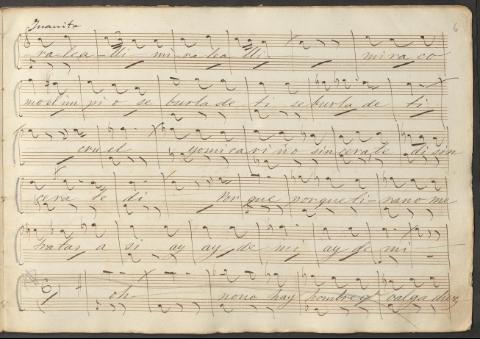 Juanito
6
ra lea - lli mi ra lea lli mira co
mo el im pi o se burla de ti se burla de ti
cruel yo mi cariño sincera te di sin
cera te di Por que porque ti - rano me
tratas a si ay ay de mi ay de mi
oh no no hay hombre q. valga diez